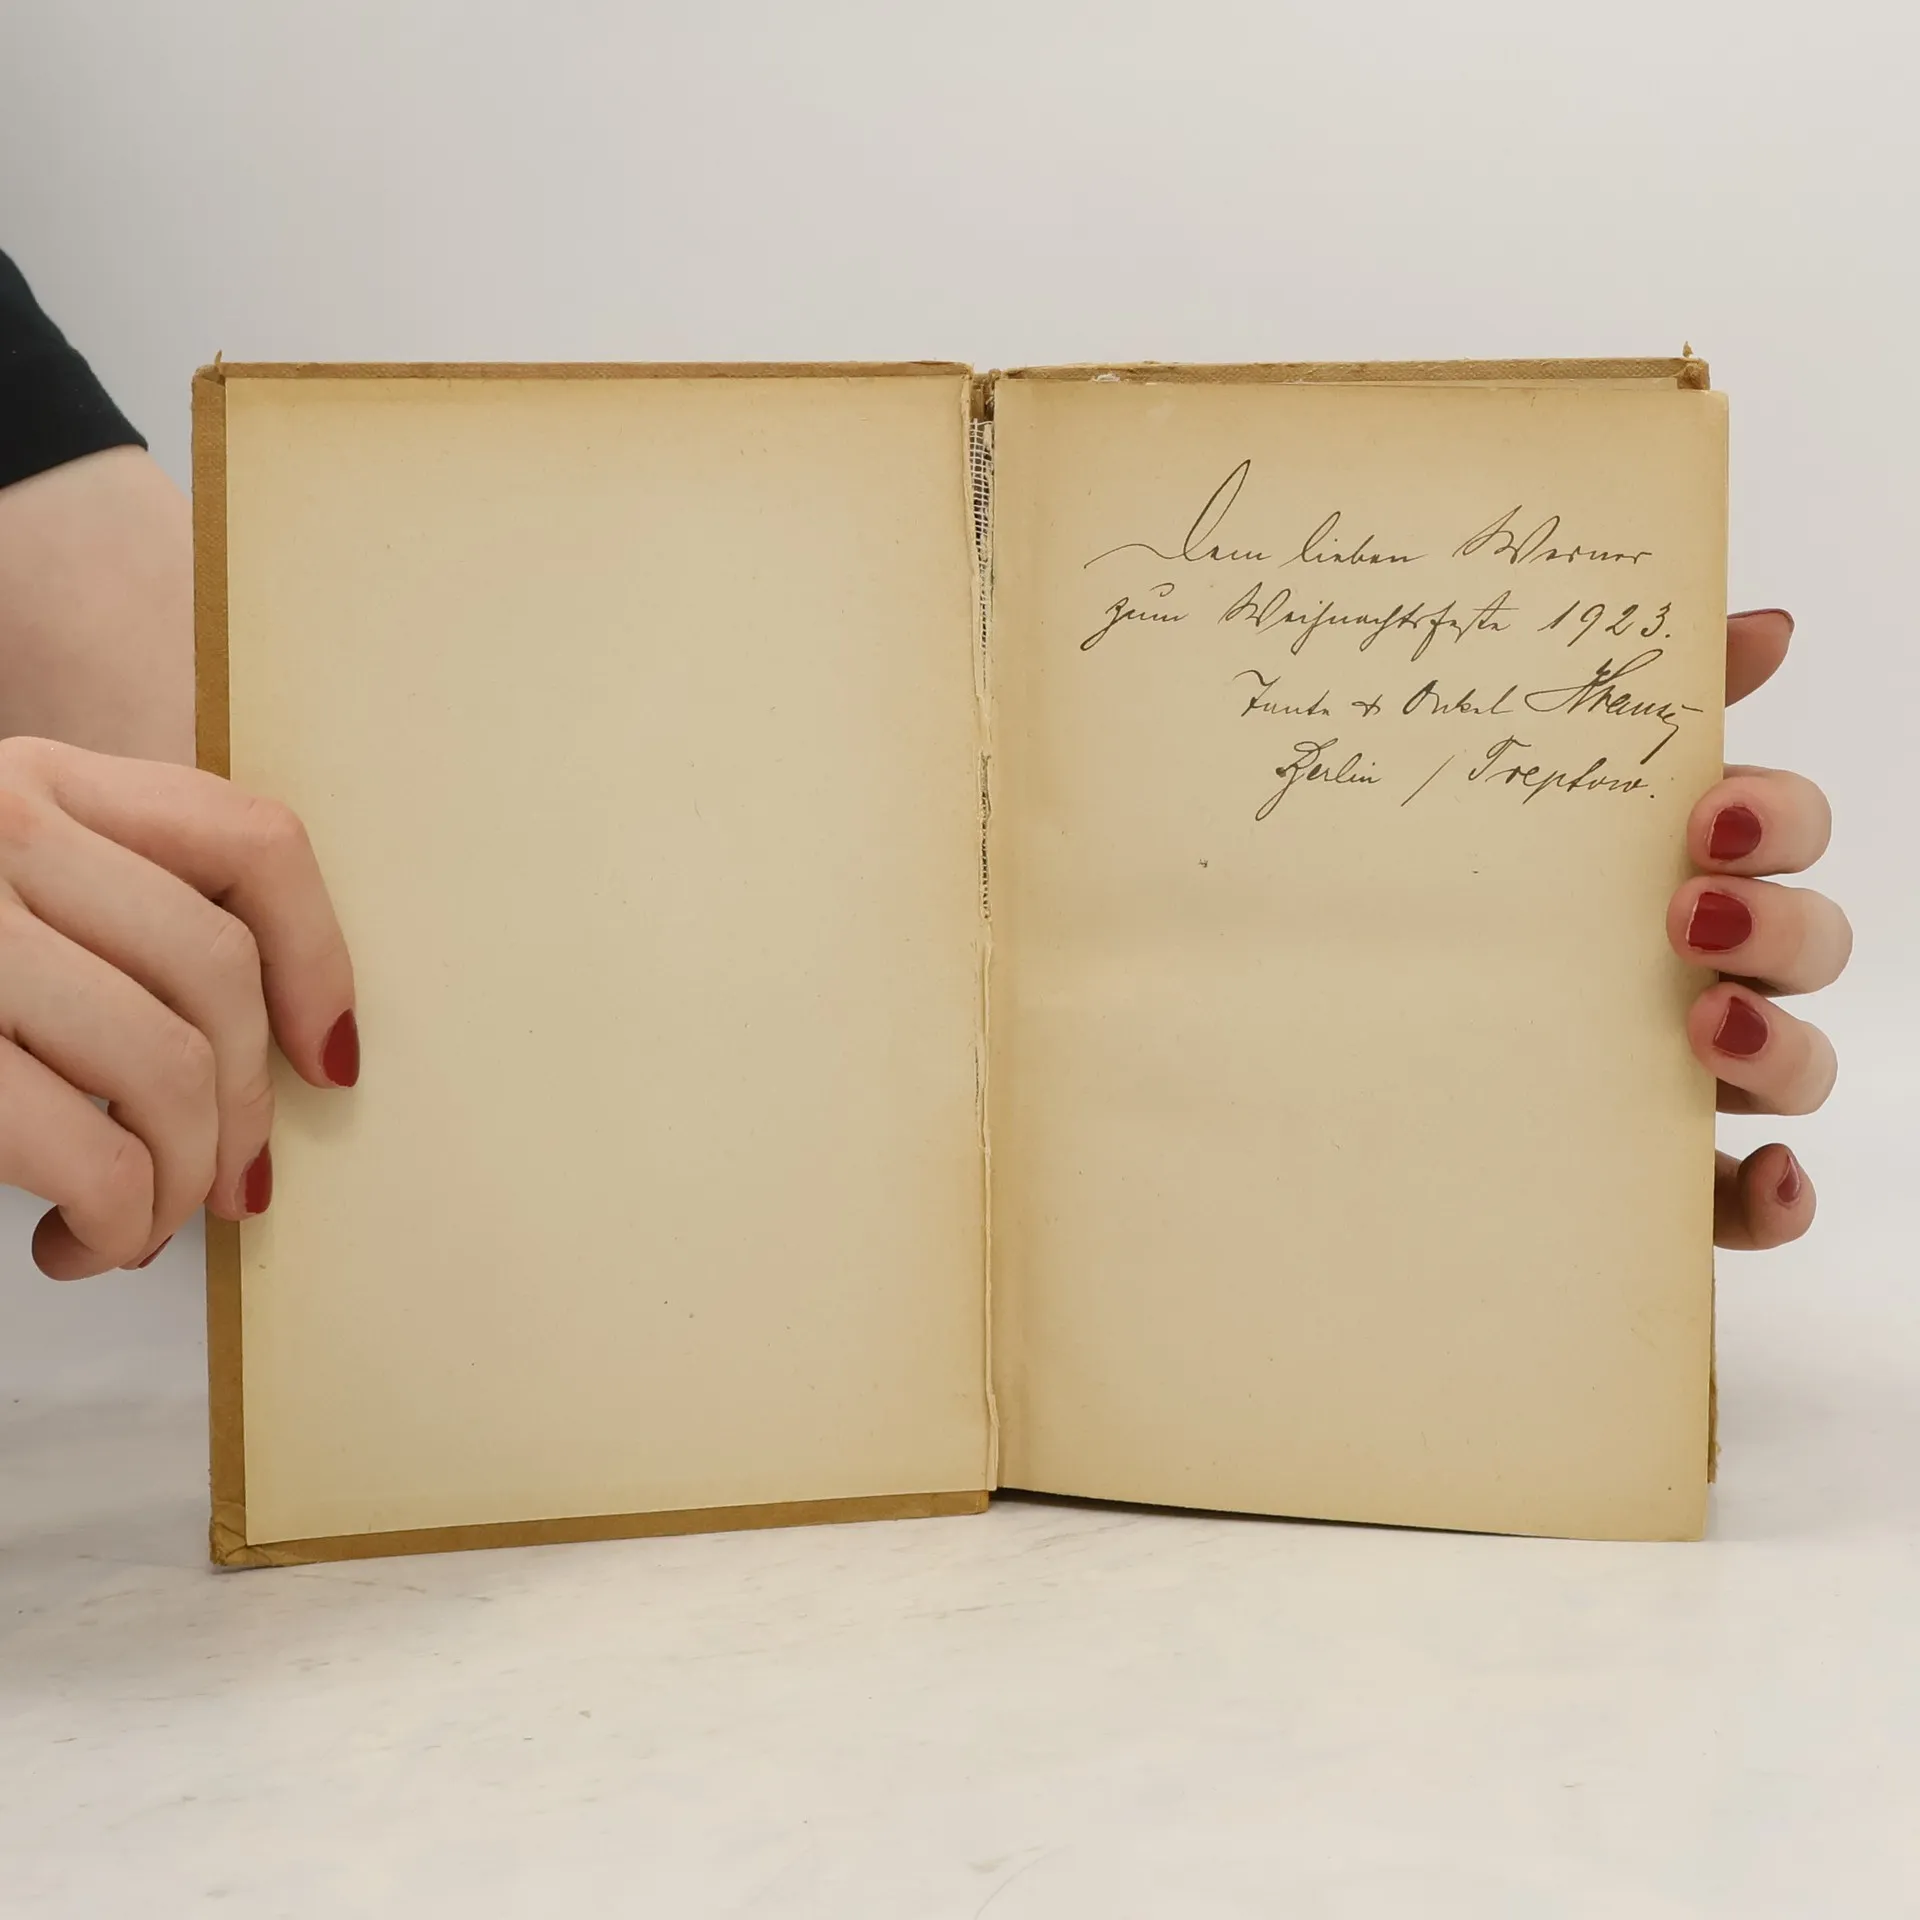 Dem lieben Werner
zum Weihnachtsfeste 1923.
Tante & Onkel
Berlin / Treptow.